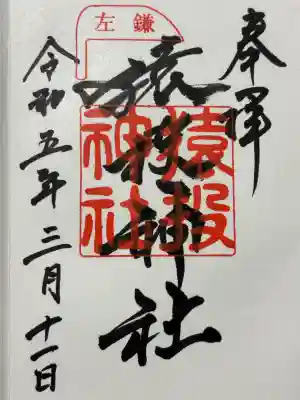 奉拝
左鎌
猿投神社
猿投神社
令和五年三月十一日